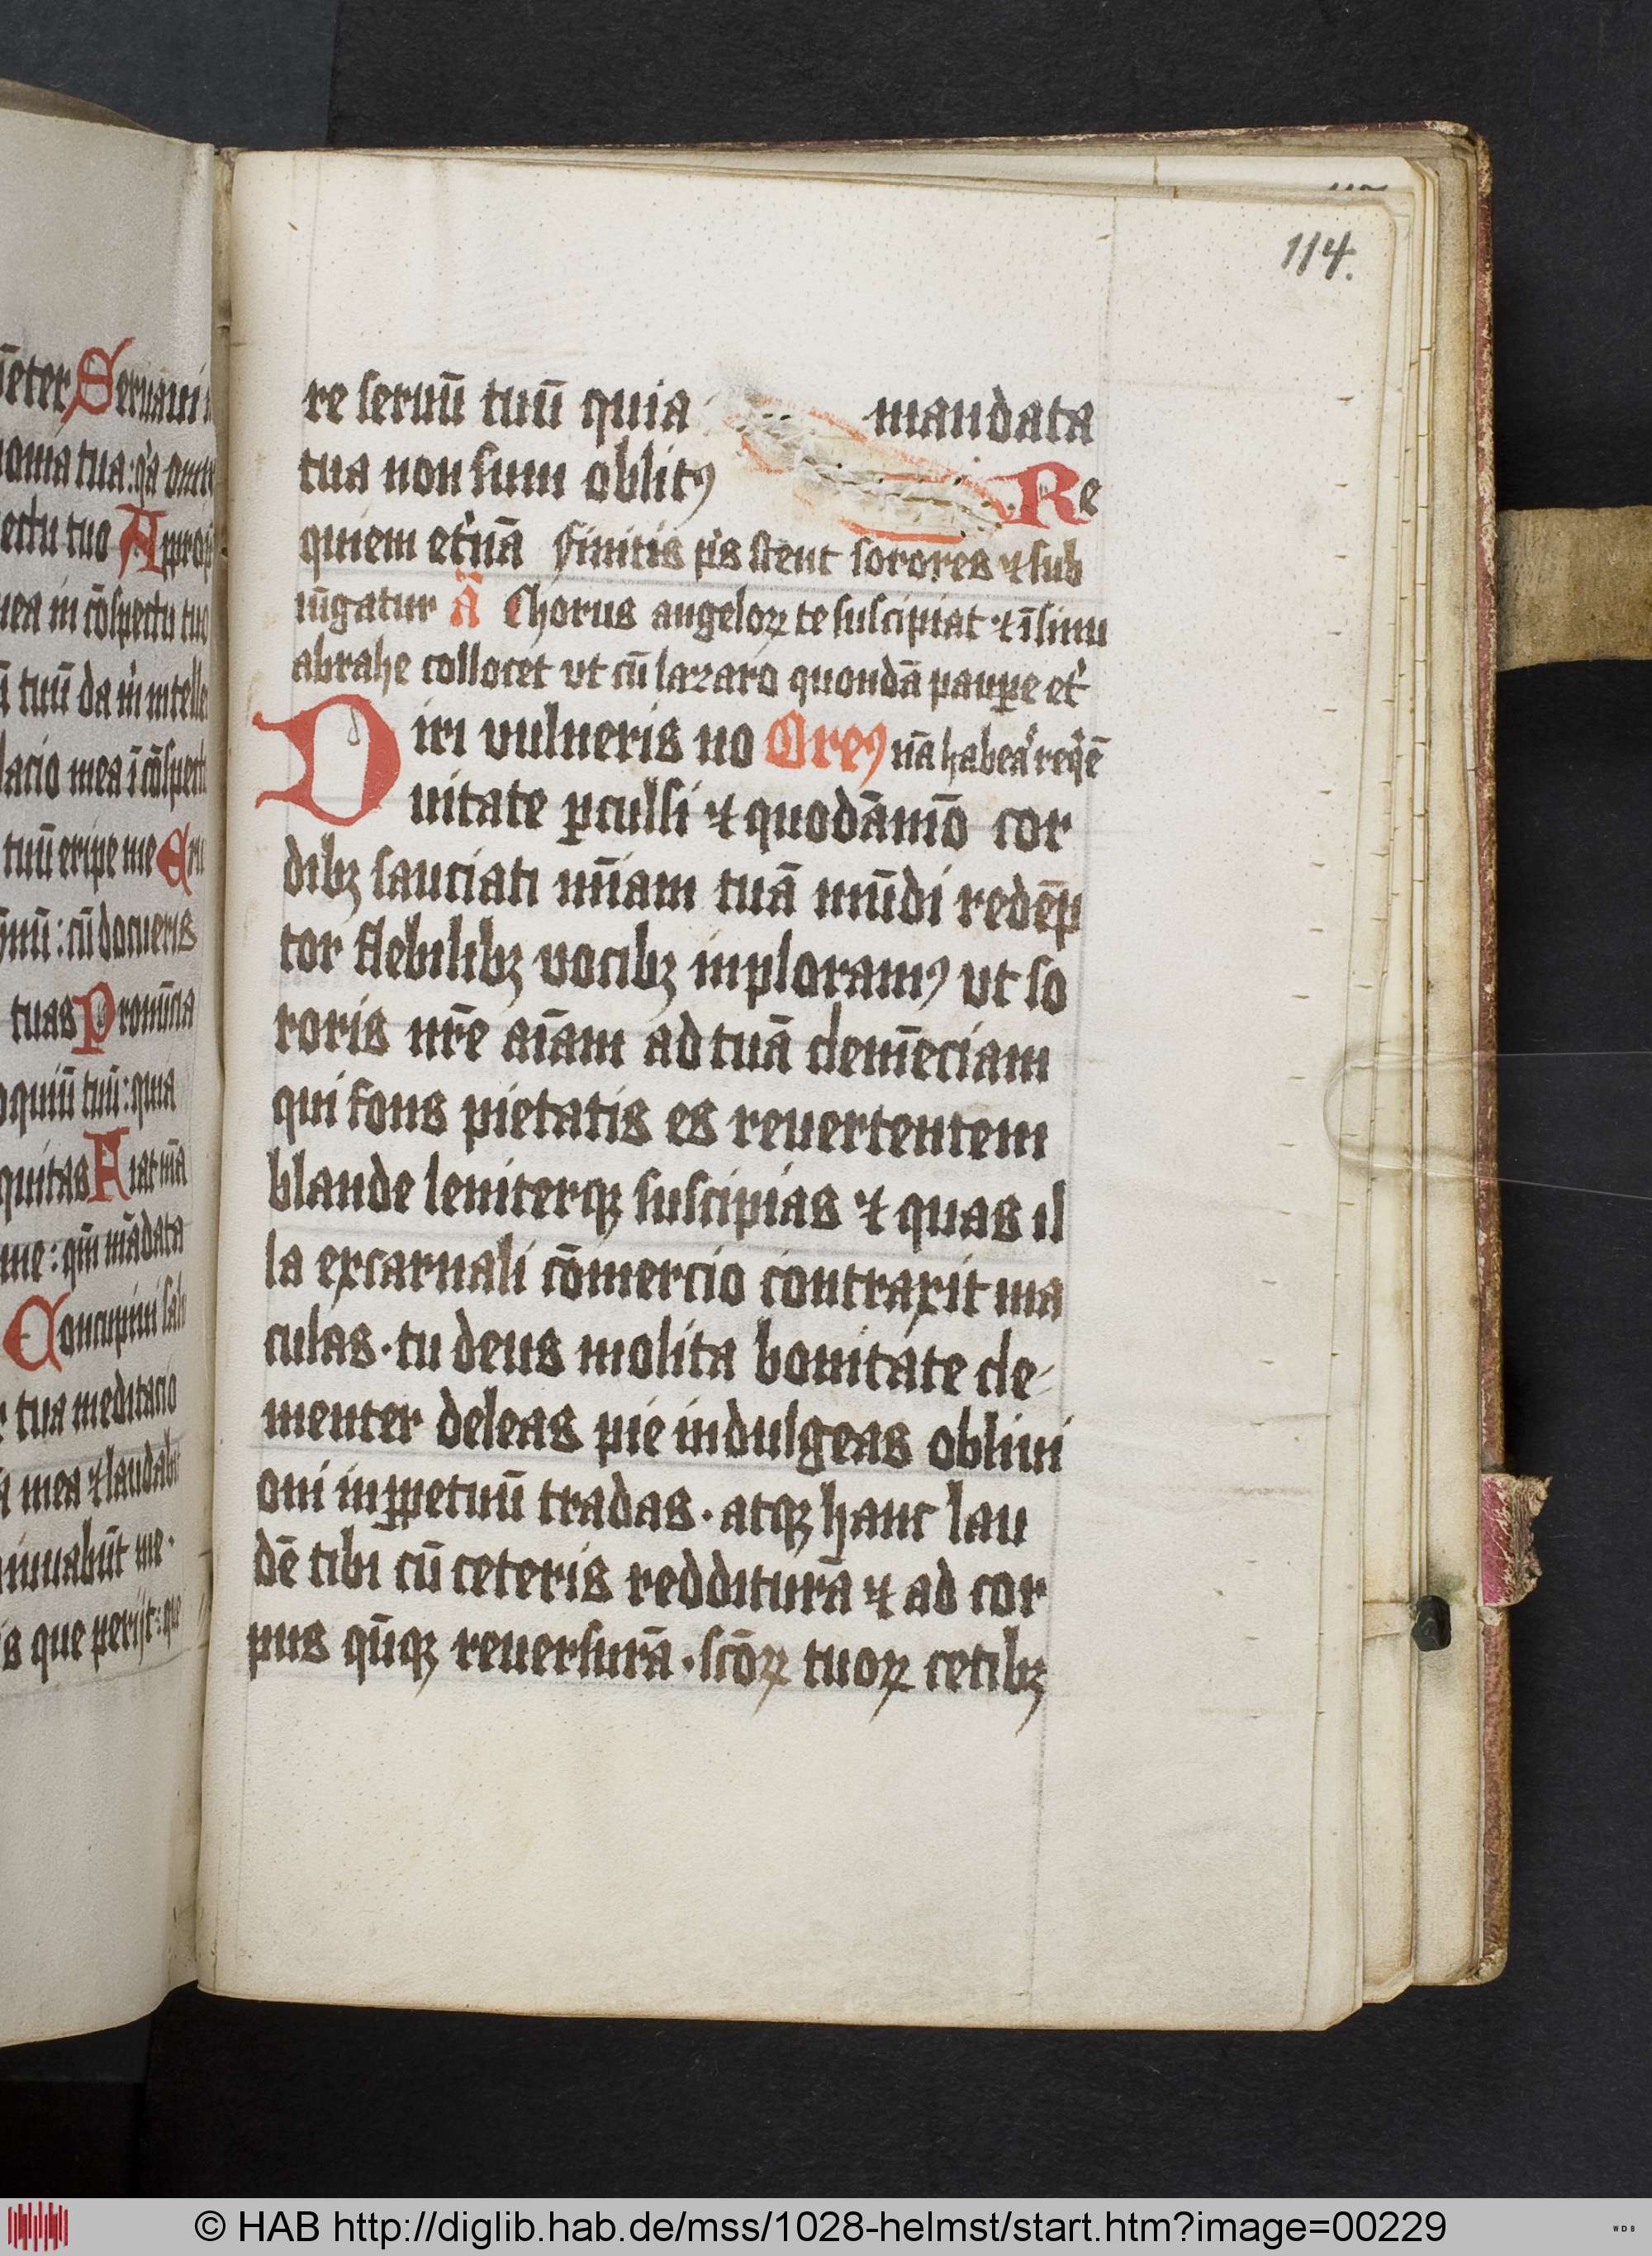 īeter Seruaui
ectu tuo Appropi
nea in cōspectu tuo
ū tuū da m̍ intelle
lacio mea ī cōspectu
tuū eripe me Eru
tuas Pronūcia
quitas
me: qm̄ mādata
Concupiui salu
tua meditacio
mea ⁊ laudabit
iuuabūt me·
s que perijt: q̄
114.
re seruū tuū quia mandata
tua non sum oblitꝰ Re
quiem et̍nā finitis p̍s stent sorores ⁊ sub
iūgatur Ā Chorus angeloꝝ te suscipiat ⁊ ī sinu
abrahe collocet vt cū lazaro quondā paup̱e et̍
Diri vulneris no Oremꝰ nā habea̍ req̍ē
uitate ꝑculsi ⁊ quodāmō cor
dibꝫ sauciati mīam tuā mūdi redēp
tor flebilibꝫ vocibꝫ inploramꝰ ut so
roris nr̄e aīam ad tuā clemēciam
qui fons pietatis es reuertentem
blande leniterqꝫ suscipias ⁊ quas il
la ex carnali cōmercio contraxit ma
culas· tu deus molita bonitate cle
menter deleas pie indulgeas obliui
oni inꝑpetuū tradas· atqꝫ hanc lau
dē tibi cū ceteris redditurā ⁊ ad cor
pus qn̄qꝫ reuersurā· scōꝝ tuoꝝ cetibꝫ
© HAB http://diglib.hab.de/mss/1028-helmst/start.htm?image=00229
WDB